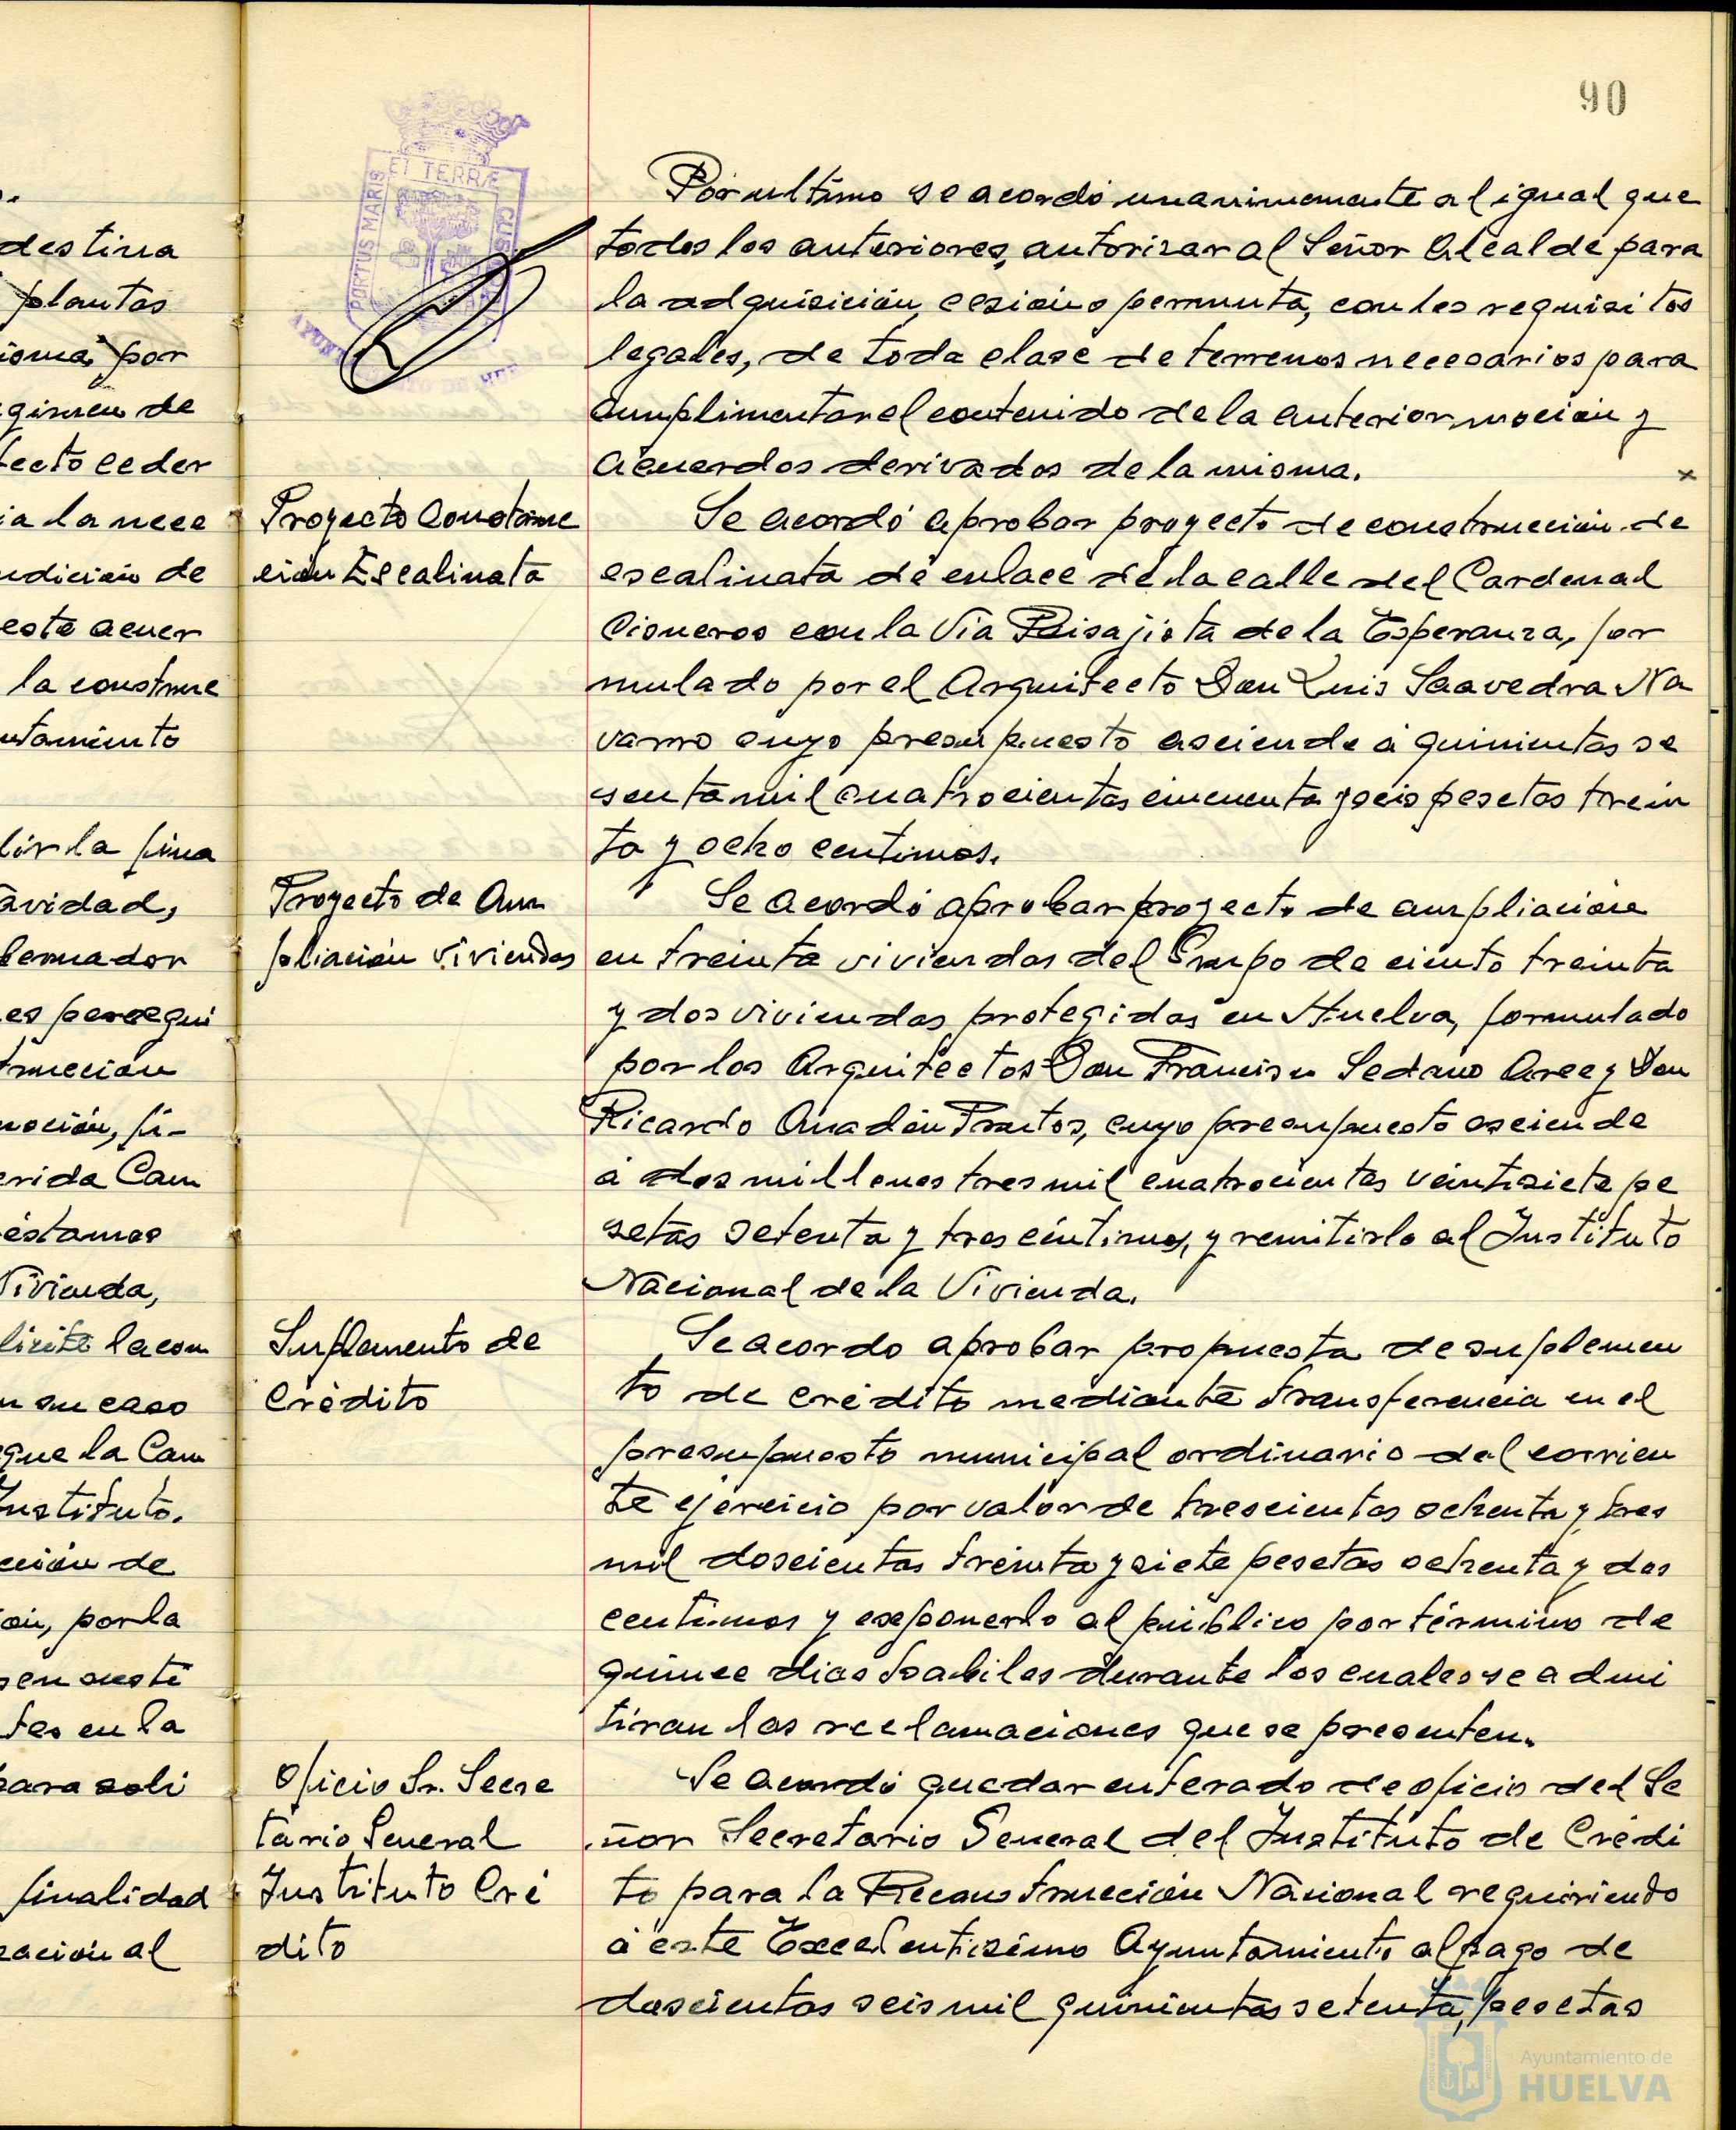 90
ET TERRÆ
PORTUS MARIS
CUSTO
destina
plantas
por
gimen de
fecto ceder
ia la nece
ndición de
este acuer
la construc
ntamiento
lir la fina
avidad,
bernador
es persegui
trucción
noción, fi-
erida Cam
éstamos
Vivienda,
licite la com
n su caso
que la Cam
Instituto.
cción de
ón, por la
sen susti
tes en la
para soli
finalidad
ración al
Por ultimo se acordó unanimemente al igual que
todos los anteriores, autorizar al Señor Alcalde para
la adquisición, cesión o permuta, con los requisitos
legales, de toda clase de terrenos necesarios para
cumplimentar el contenido de la anterior moción y
acuerdos derivados de la misma.
Proyecto Construc
ción Escalinata
Se acordó aprobar proyecto de construcción de
escalinata de enlace de la calle del Cardenal
Cisneros con la Vía Paisajista de la Esperanza, for
mulado por el Arquitecto Don Luis Saavedra Na
varro cuyo presupuesto asciende á quinientas se
senta mil cuatrocientas cincuenta y seis pesetas trein
ta y ocho centimos.
Proyecto de Am
pliación Viviendas
Se acordó aprobar proyecto de ampliación
en treinta viviendas del Grupo de ciento treinta
y dos viviendas protegidas en Huelva, formulado
por los Arquitectos Don Francisco Sedano Arce y Don
Ricardo Anadón Frutos, cuyo presupuesto asciende
á dos millones tres mil cuatrocientas veintisiete pe
setas setenta y tres céntimos, y remitirlo al Instituto
Nacional de la Vivienda.
Suplemento de
Crédito
Se acordo aprobar propuesta de suplemen
to de crédito mediante transferencia en el
presupuesto municipal ordinario del corrien
te ejercicio por valor de trescientas ochenta y tres
mil doscientas treinta y siete pesetas ochenta y dos
centimos y exponerlo al público por término de
quince dias habiles durante los cuales se admi
tiran las reclamaciones que se presenten.
Oficio Sr. Secre
tario General
Instituto Cré
dito
Se acordó quedar enterado de oficio del Se
ñor Secretario General del Instituto de Crédi
to para la Reconstrucción Nacional requiriendo
á este Excelentisimo Ayuntamiento al pago de
doscientas seis mil quinientas setenta, pesetas
Ayuntamiento de
HUELVA